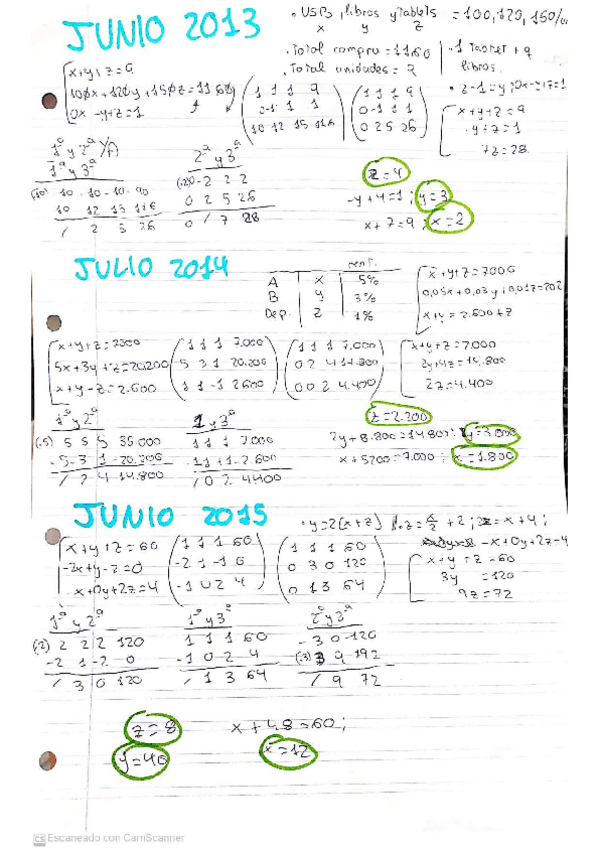 JUNIO 2013
• USB, libros y Tablets = 100, 120, 150/u
x y z
• Total compra = 1160
• Total unidades = 9
• 1 Tablet + q libros.
• z-1=y; 0x-y+z=1
x+y+z=9
100x+120y+150z=1160
0x -y+z=1
1 1 1 9
0 -1 1 1
10 12 15 116
1 1 1 9
0 -1 1 1
0 2 5 26
x+y+z=9
-y+z=1
7z=28
1ª y 2ª
1ª y 3ª
(-10) -10 -10 -10 -90
10 12 15 116
/ 2 5 26
2ª y 3ª
(·2) 0 -2 2 2
0 2 5 26
0 / 7 28
z=4
-y+4=1; y=3
x+7=9; x=2
JULIO 2014
rent.
A x 5%
B y 3%
Dep. z 1%
x+y+z=7000
0,05x+0,03y+0,01z=202
x+y=2.600+z
x+y+z=7000
5x+3y+z=20.200
x+y-z=2.600
1 1 1 7.000
5 3 1 20.200
1 1 -1 2600
1 1 1 7.000
0 2 4 14.800
0 0 2 4.400
x+y+z=7.000
2y+4z=14.800
2z=4.400
1ª y 2ª
(·5) 5 5 5 35.000
-5 -3 -1 -20.200
/ 2 4 14.800
1 y 3ª
1 1 1 7.000
-1 -1 +1 -2.600
/ 0 2 4400
z=2.200
2y+8.800=14.800; y=3.000
x+5200=7.000; x=1.800
JUNIO 2015
• y=2(x+z)
z=x/2+2; 2z=x+4;
-x+0y+2z=4
x+y+z=60
-2x+y-z=0
-x+0y+2z=4
1 1 1 60
-2 1 -1 0
-1 0 2 4
1 1 1 60
0 3 0 120
0 1 3 64
x+y+z=60
3y =120
9z=72
1ª y 2ª
(·2) 2 2 2 120
-2 1 -2 0
/ 3 0 120
1ª y 3ª
1 1 1 60
-1 0 2 4
/ 1 3 64
2ª y 3ª
-3 0 -120
(·3) 3 9 192
/ 9 72
z=8
y=40
x+48=60;
x=12
CS Escaneado con CamScanner